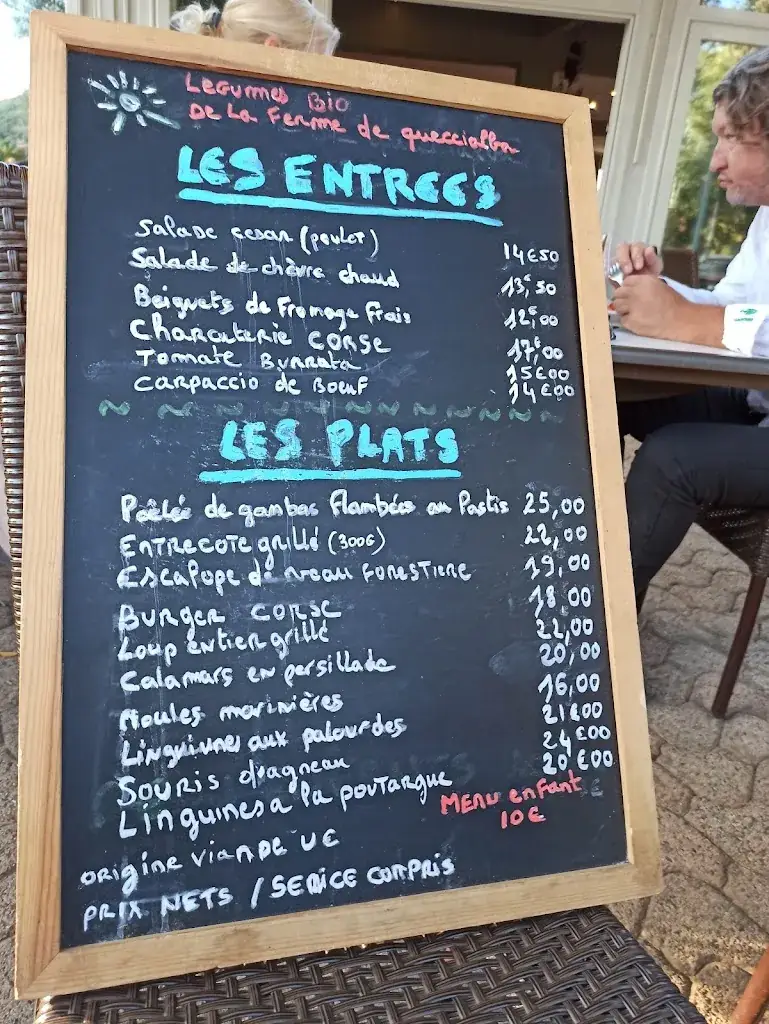 Legumes Bio
De La Ferme de queccialba
LES ENTREES
Salade cesar (poulet) 14€50
Salade de chèvre chaud 13€,50
Beignets de Fromage Frais 12€,00
Charcuterie CORSE 17€,00
Tomate Burrata 15€00
Carpaccio de Boeuf 14€00
LES PLATS
Poêlée de gambas flambées au Pastis 25,00
Entrecote grillé (300G) 22,00
Escalope de veau FORESTIERE 19,00
Burger CORSE 18,00
Loup entier grillé 22,00
Calamars en persillade 20,00
Moules marinières 16,00
Linguiunes aux palourdes 21€00
Souris d'agneau 24€00
Linguines a la poutargue 20€00
MENU enFant
10€
origine ViANDE UE
PRIX NETS / SERICE COMPRIS